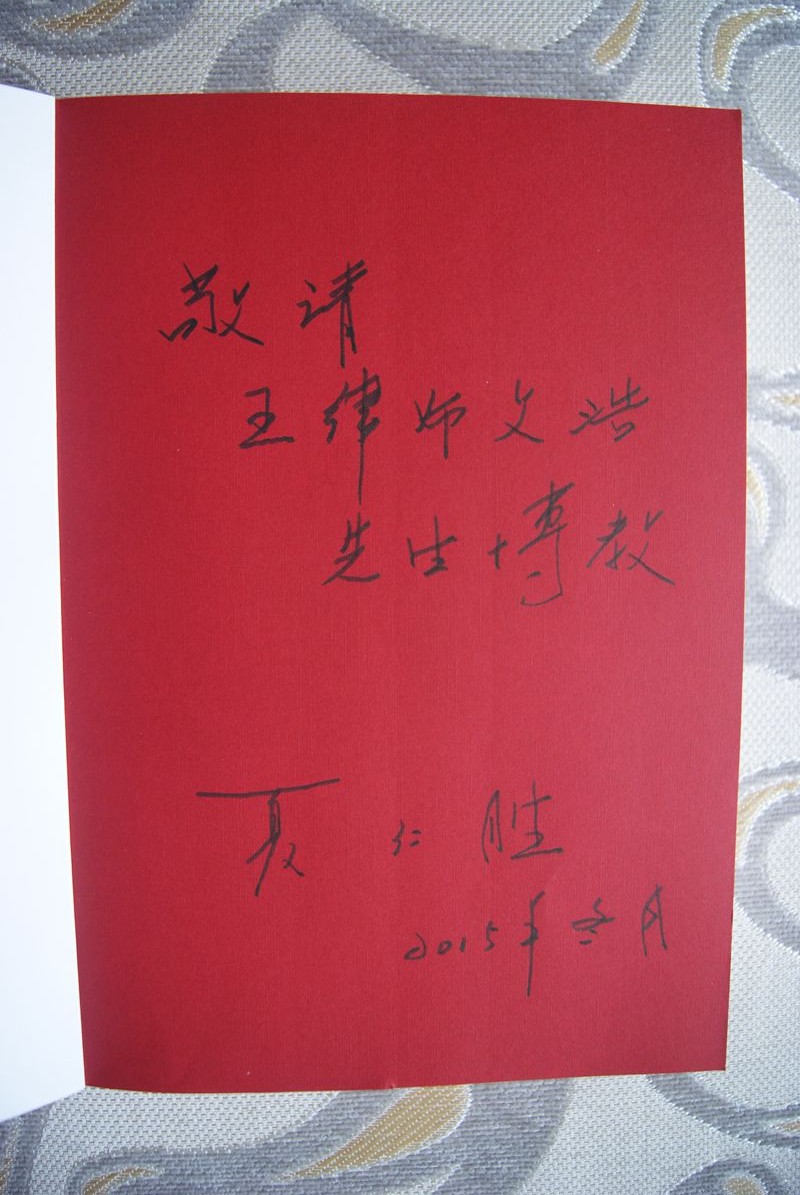 敬请
王律师文浩
先生博教
夏仁胜
2015年冬月